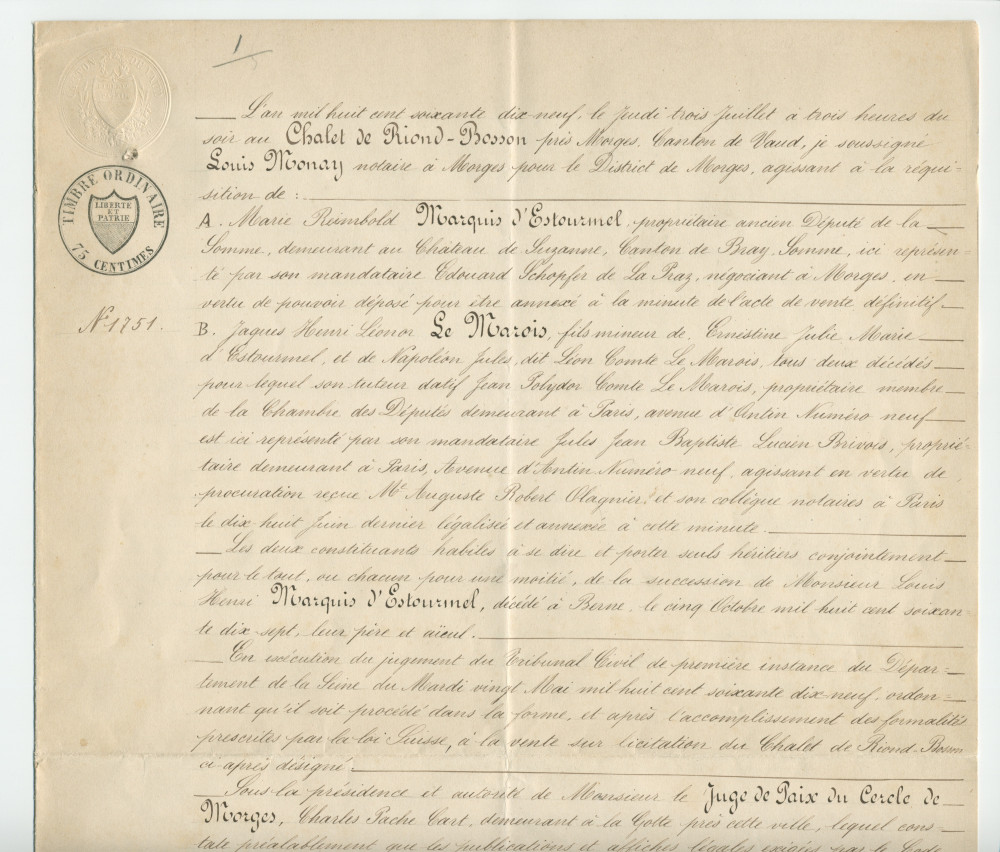 1
L'an mil huit cent soixante dix-neuf, le Jeudi trois Juillet à trois heures du
soir au Chalet de Riond-Bosson près Morges, Canton de Vaud, je soussigné
Louis Monay notaire à Morges pour le District de Morges, agissant à la réqui-
sition de :
TIMBRE ORDINAIRE
LIBERTE
ET
PATRIE
75 CENTIMES
A. Marie Reimbold Marquis d'Estourmel, propriétaire ancien Député de la
Somme, demeurant au Château de Suzanne, Canton de Bray, Somme, ici représen-
té par son mandataire Edouard Schopfer de La Praz, négociant à Morges, en
vertu de pouvoir déposé pour être annexé à la minute de l'acte de vente définitif.
No 1751.
B. Jaques Henri Léonor Le Marois, fils mineur de, Ernestine Julie Marie
d'Estourmel, et de Napoléon Jules, dit Léon Comte Le Marois, tous deux décédés
pour lequel son tuteur datif Jean Polydor Comte Le Marois, propriétaire membre
de la Chambre des Députés demeurant à Paris, avenue d'Antin Numéro neuf
est ici représenté par son mandataire Jules Jean Baptiste Lucien Brivois, proprié-
taire demeurant à Paris, Avenue d'Antin Numéro neuf, agissant en vertu de
procuration reçue Mt Auguste Robert Olagnier, et son collègue notaires à Paris
le dix huit Juin dernier légalisée et annexée à cette minute.
Les deux constituants habiles à se dire et porter seuls héritiers conjointement
pour le tout, ou chacun pour une moitié, de la succession de Monsieur Louis
Henri Marquis d'Estourmel, décédé à Berne, le cinq Octobre mil huit cent soixan
te dix-sept, leur père et aïeul.
En exécution du jugement du Tribunal Civil de première instance du Dépar-
tement de la Seine du Mardi vingt Mai mil huit cent soixante dix-neuf, ordon-
nant qu'il soit procédé dans la forme, et après l'accomplissement des formalités
prescrites par la loi Suisse, à la vente sur licitation du Chalet de Riond-Bosson
ci-après désigné.
Sous la présidence et autorité de Monsieur le Juge de Paix du Cercle de
Morges, Charles Pache Cart, demeurant à la Gotte près cette ville, lequel cons-
tate préalablement que les publications et affiches légales exigées par le Code